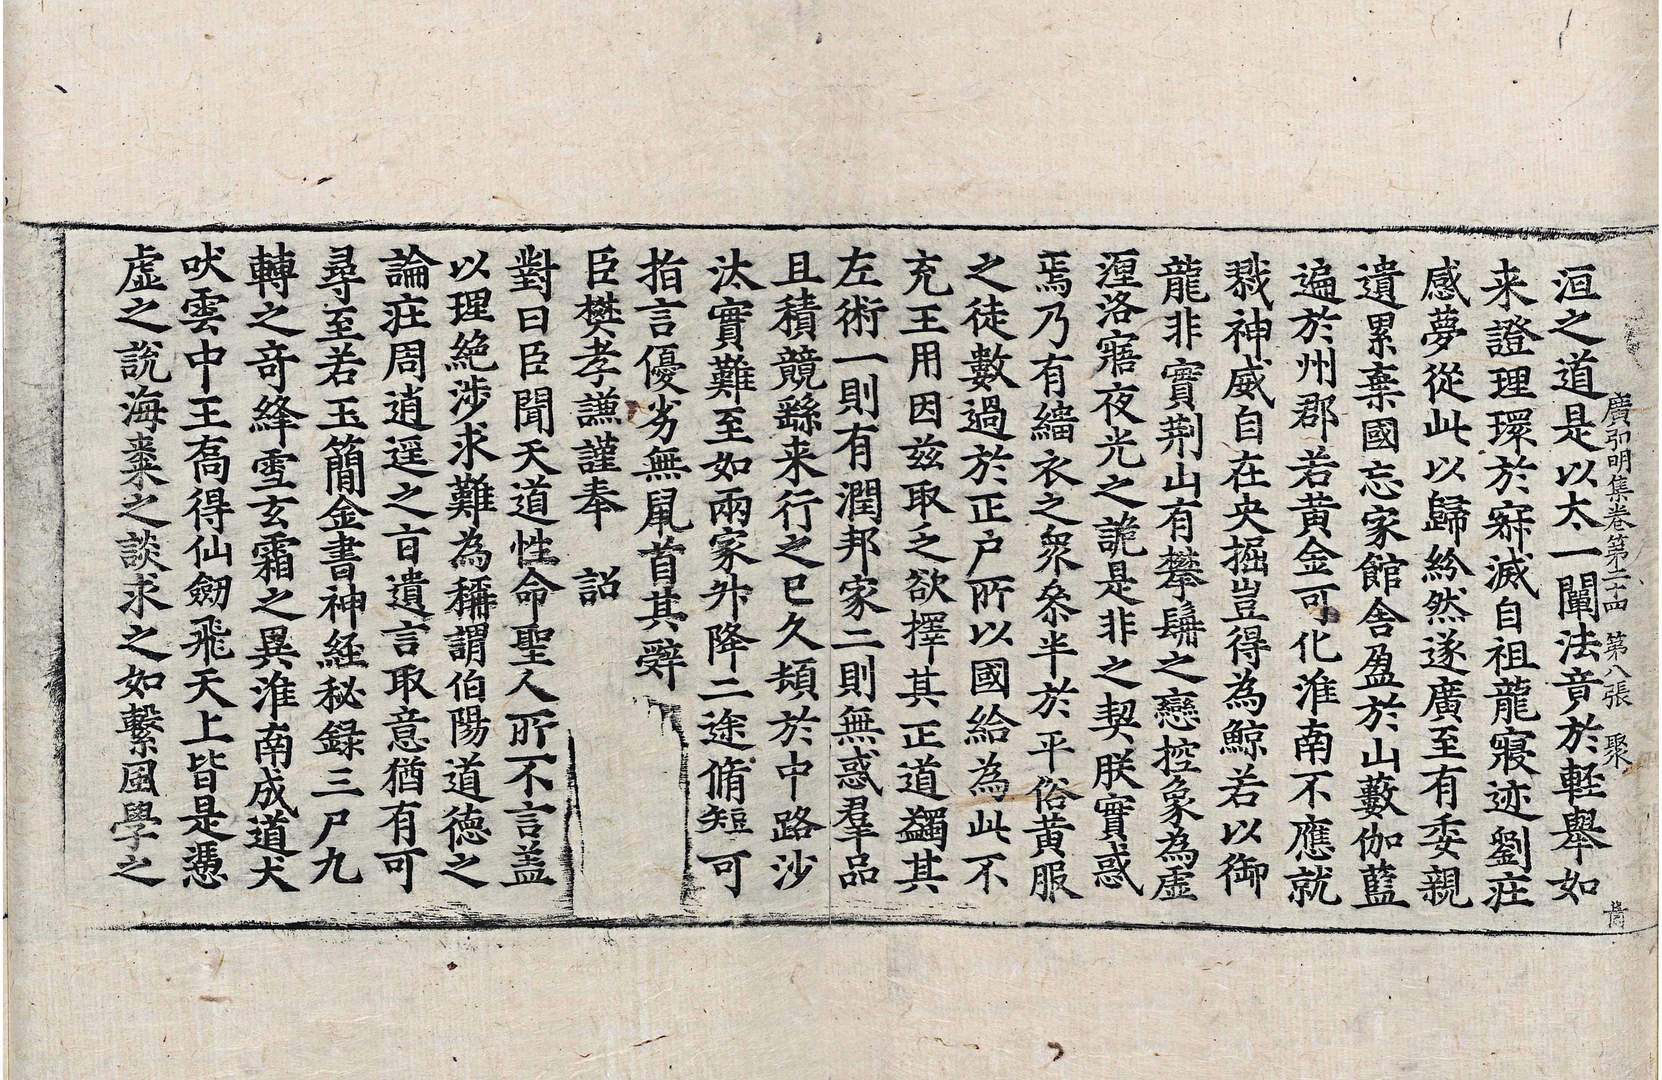 廣弘明集卷第二十四 第八張 聚
洹之道是以太一闡法竟於輕舉如
来證理環於寂滅自祖龍寢迹劉莊
感夢從此以歸紛然遂廣至有委親
遺累棄國忘家館舍盈於山藪伽藍
遍於州郡若黃金可化淮南不應就
戮神威自在央掘豈得為鯨若以御
龍非實荆山有攀髯之戀控象為虛
湼洛寤夜光之詭是非之契朕實惑
焉乃有緇衣之衆叅半於平俗黃服
之徒數過於正户所以國給為此不
充王用因兹取乏欲擇其正道蠲其
左術一則有潤邦家二則無惑羣品
且積競繇来行之已久頓於中路沙
汰實難至如兩家升降二途脩短可
指言優劣無鼠首其辭
臣樊孝謙謹奉 詔
對曰臣聞天道性命聖人所不言蓋
以理絶涉求難為稱謂伯陽道德之
論莊周逍遥之旨遺言取意猶有可
尋至若玉簡金書神經秘録三尸九
轉之竒絳雪玄霜之異淮南成道犬
吠雲中王喬得仙劒飛天上皆是憑
虛之說海棗之談求之如繫風學之